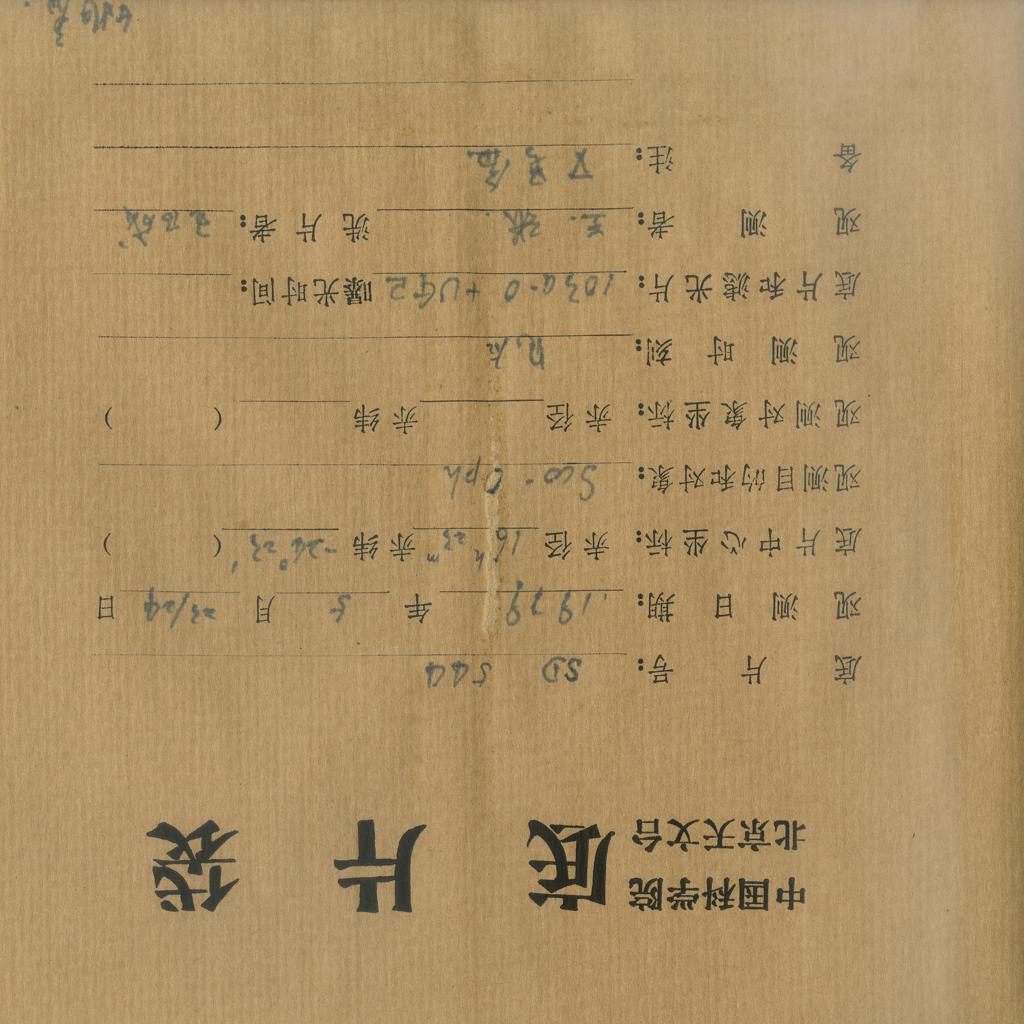 中国科学院
北京天文台 底片袋
底片号: SD 544
观测日期: 1979年 5月 23/24日
底片中心坐标: 赤径 16ʰ 23ᵐ 赤纬 -26°23′ ( )
观测目的和对象: Sco-Oph
观测对象坐标: 赤径 赤纬 ( )
观测时刻:
底片和滤光片: 103a-O + UG2 曝光时间:
观测者: 王. 张. 洗片者:
备注: